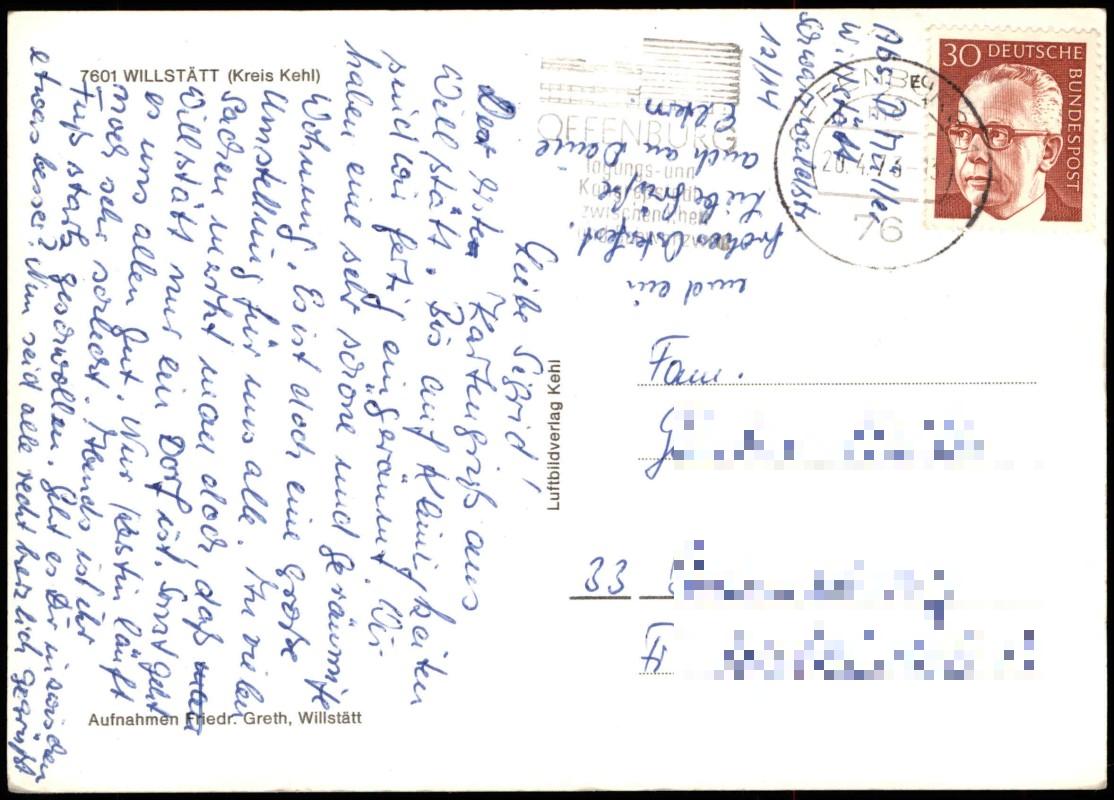 7601 WILLSTÄTT (Kreis Kehl)
Liebe Sigrid!
Der erste Kartengruß aus
Willstätt. Bis auf Kleinigkeiten
sind wir fertig eingeräumt. Wir
haben eine sehr schöne und geräumige
Wohnung. Es ist doch eine große
Umstellung für uns alle. In vielen
Sachen merkt man doch, daß man
Willstätt nur ein Dorf ist. Sonst geht
es uns allen gut. Nur Kerstin läuft
noch sehr schlecht. Abends ist ihr
Fuß stark geschwollen. Geht es Dir inzwischen
etwas besser? Nun seid alle recht herzlich gegrüßt
und ein
frohes Osterfest.
Liebe Grüße
auch an Deine
Eltern
Aufnahmen Friedr. Greth, Willstätt
Luftbildverlag Kehl
Abs. Müller
Willstätt
Schwarzwaldstr.
12/14
OFFENBURG
Tagungs- und
Kongressstadt
zwischen
OFFENBURG
20.4.73
76
30 DEUTSCHE
BUNDESPOST
Fam.
33